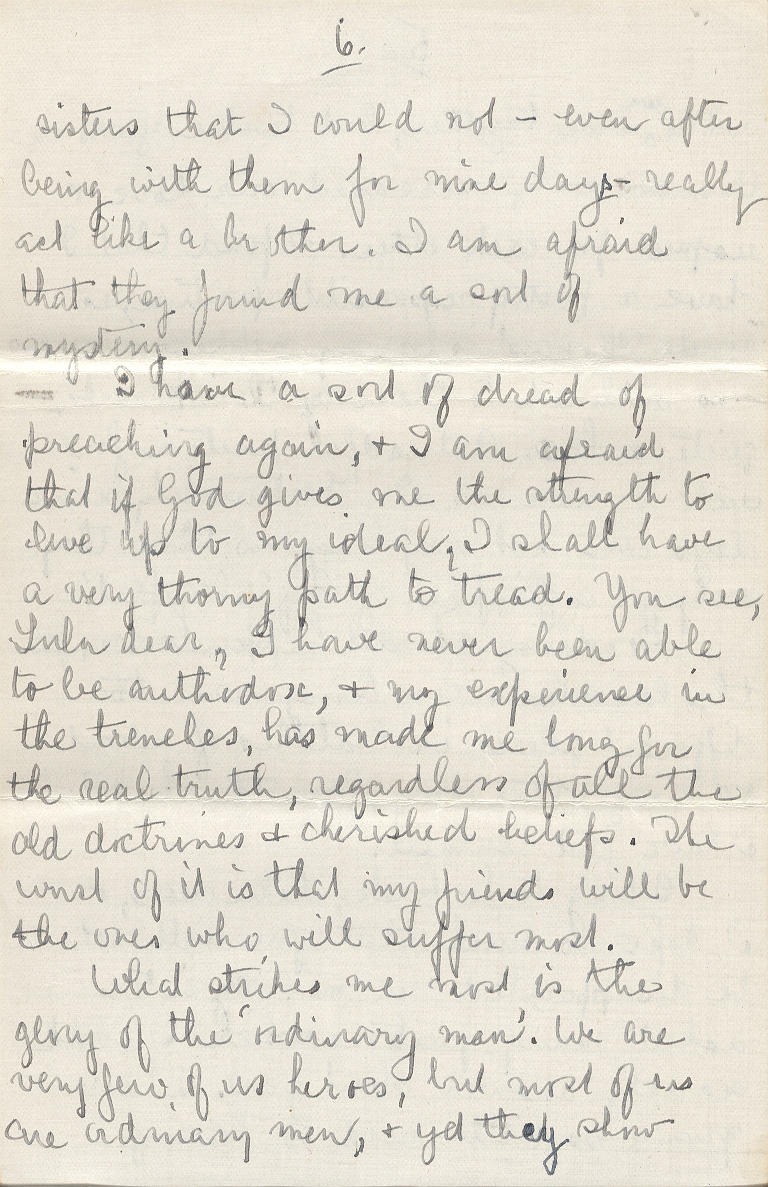 6.
sisters that I could not - even after
being with them for nine days - really
act like a brother. I am afraid
that they found me a sort of
mystery.
I have a sort of dread of
preaching again, + I am afraid
that if God gives me the strength to
live up to my ideal, I shall have
a very thorny path to tread. You see,
Lulu dear, I have never been able
to be authodox, + my experience in
the trenches, has made me long for
the real truth, regardless of all the
old doctrines & cherished beliefs. The
worst of it is that my friends will be
the ones who will suffer most.
What strikes me most is the
glory of the 'ordinary man'. We are
very few of us heroes, but most of us
are ordinary men, + yet they show